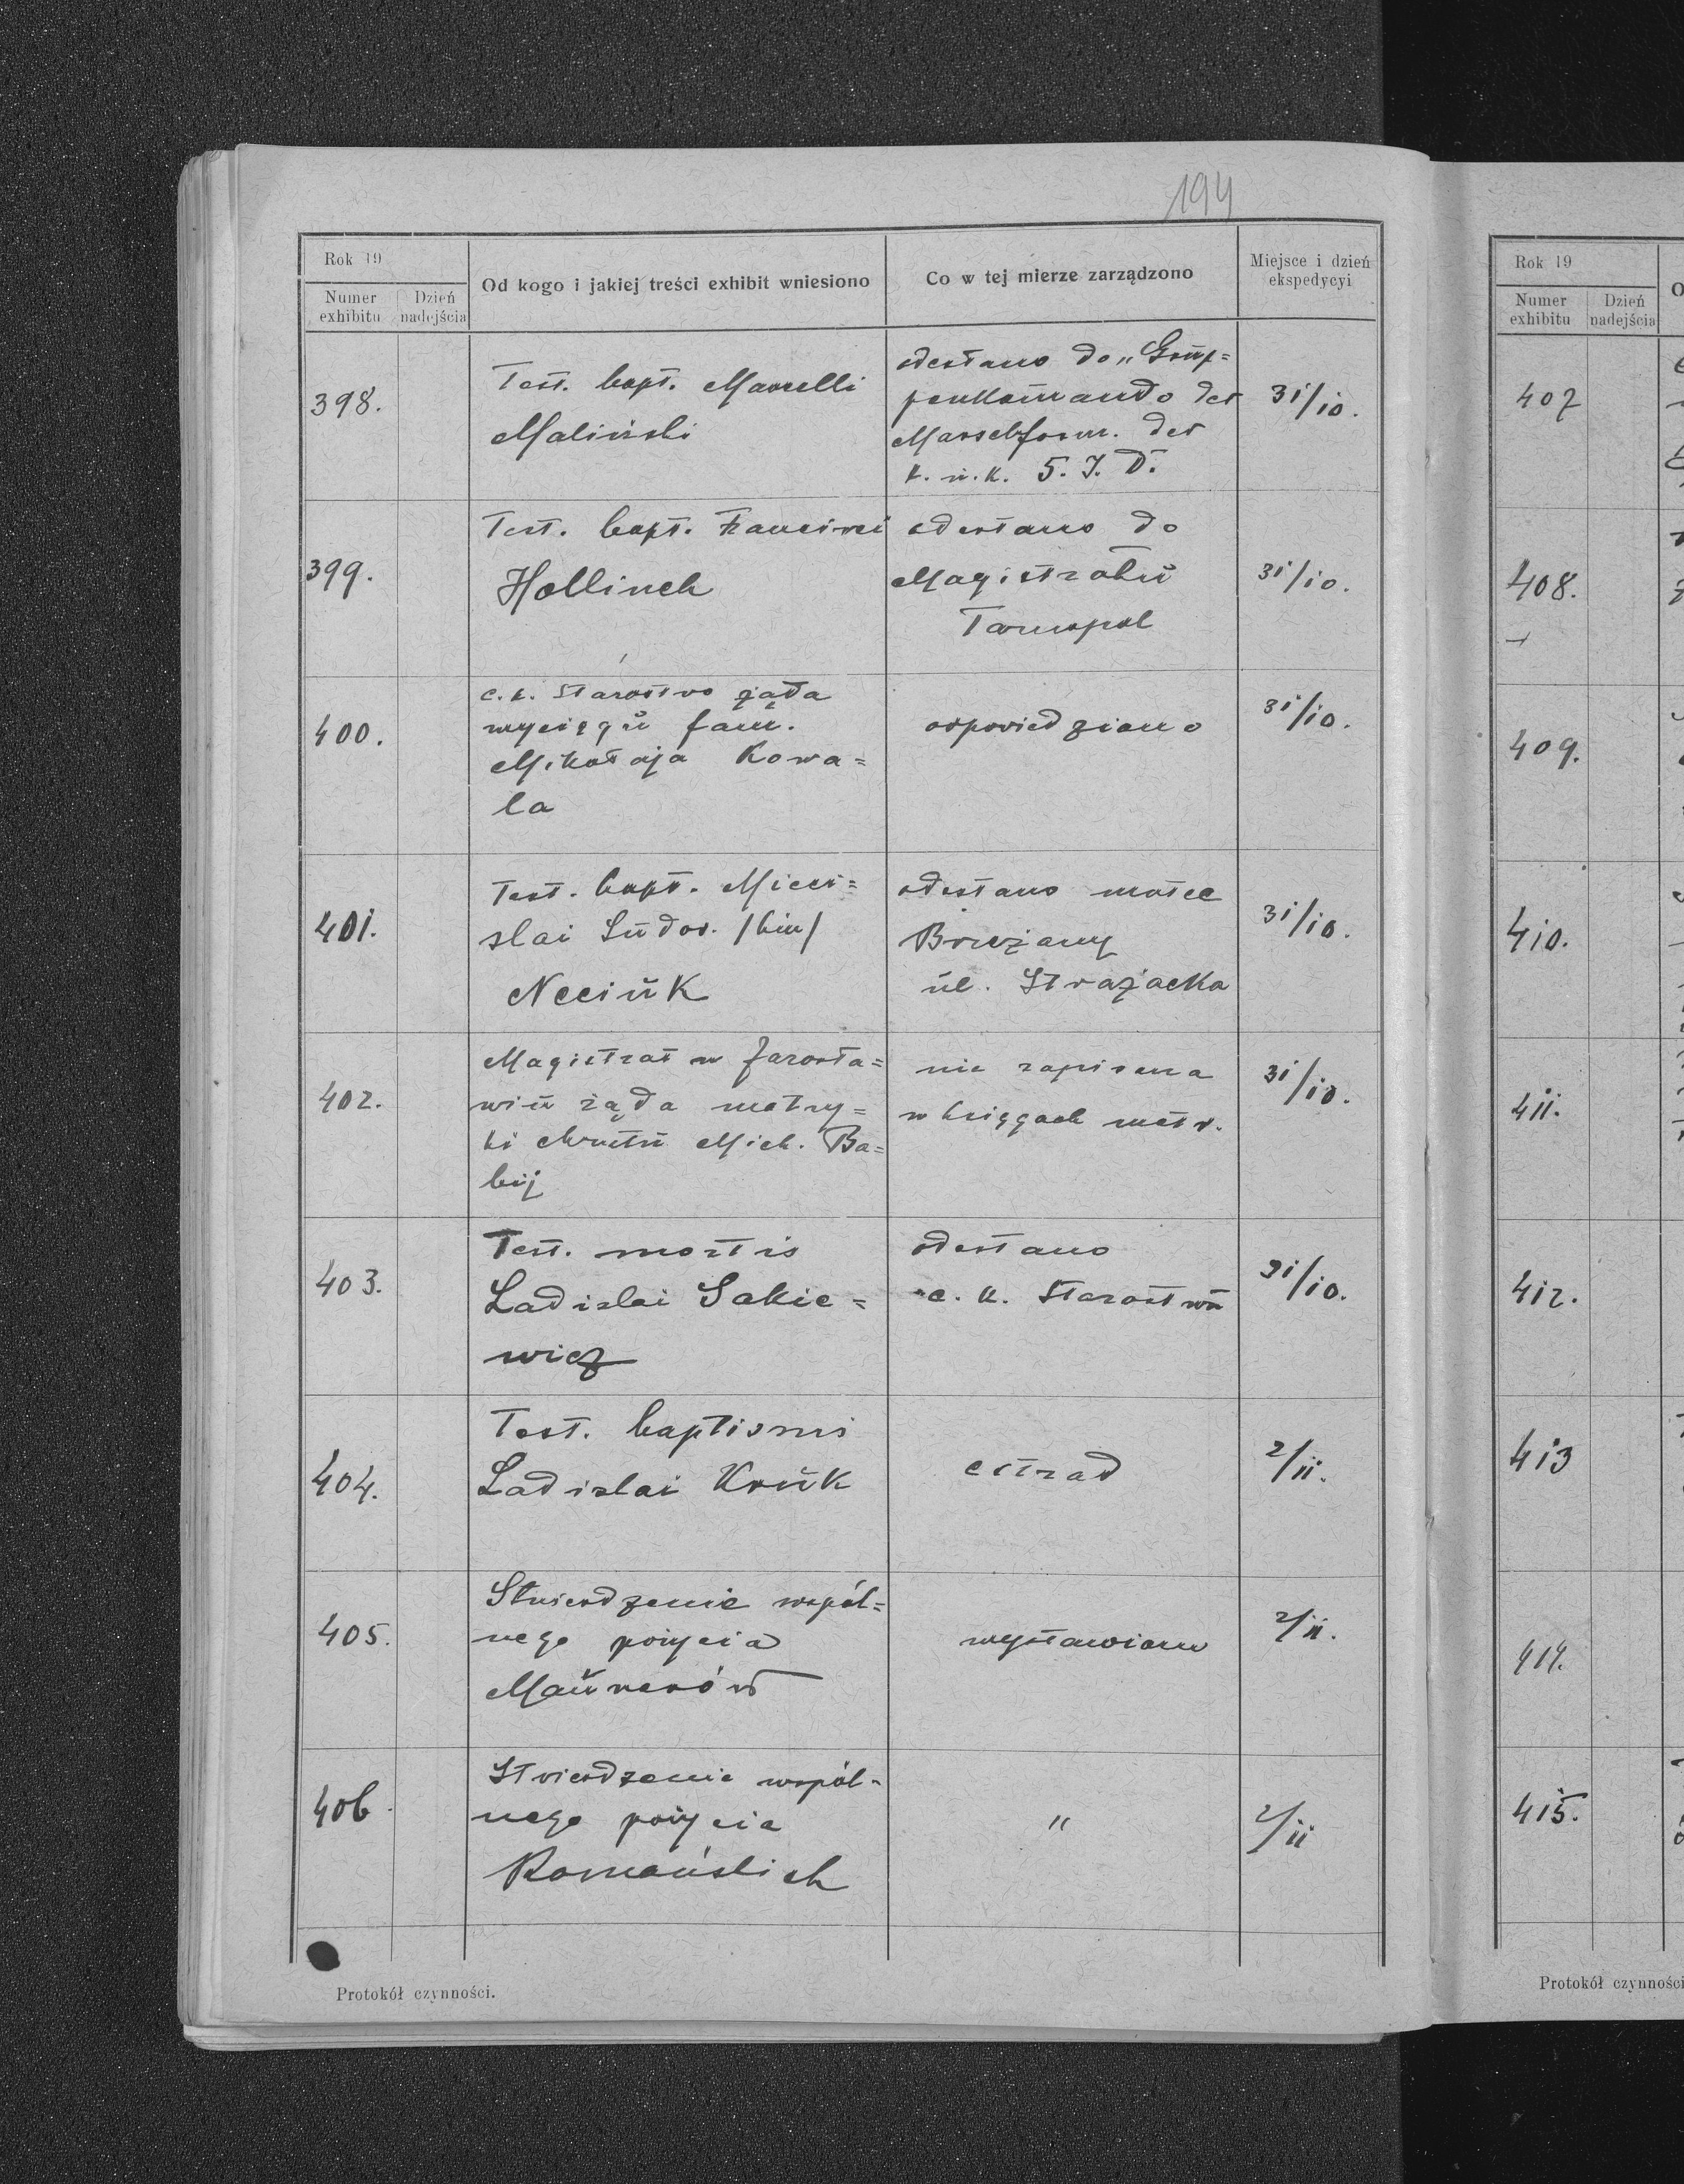 194
Rok 19
Numer exhibitu
Dzień nadejścia
Od kogo i jakiej treści exhibit wniesiono
Co w tej mierze zarządzono
Miejsce i dzień ekspedycyi
398.
Test. bapt. Marcelli
Maliński
odesłano do „Grup=
penkommando der
Marschform. der
k. u. k. 5. I. D.
31/10.
399.
Test. bapt. Francisci
Hollinek
odesłano do
Magistratu
Tarnopol
31/10.
400.
c. k. Starostwo żąda
wyciągu fam.
Mikołaja Kowa=
la
odpowiedziano
31/10.
401.
Test. bapt. Mieci=
slai Ludov. /bin/
Neciuk
odesłano matce
Brzeżany
ul. Strażacka
31/10.
402.
Magistrat w Jarosła=
wiu żąda metry=
ki chrztu Mich. Ba=
bij
nie zapisana
w księgach metr.
31/10.
403.
Test. mortis
Ladislai Sakie=
wicz
odesłano
c. k. Starostwu
31/10.
404.
Test. baptismi
Ladislai Kruk
extrad
2/11.
405.
Stwierdzenie wspól=
nego pożycia
Maunerów
wystawiono
2/11.
406
Stwierdzenie wspól-
nego pożycia
Romańskich
"
2/11
Protokół czynności.
Rok 19
Numer exhibitu
Dzień nadejścia
O
407
408.
409.
410.
411.
412.
413
414.
415.
Protokół czynności